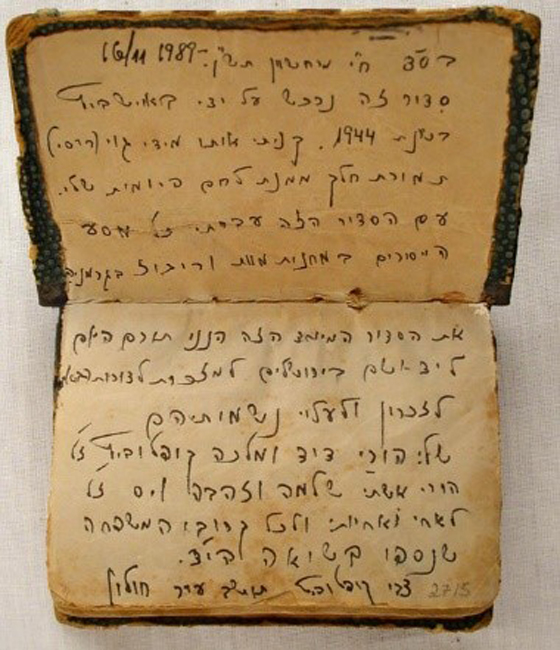 16/11 1989-
בס"ד ח"י מרחשון תש"ן.
סדור זה נרכש על ידי באושביץ
בשנת 1944. קניתי אותו מידי גוי (רוסי)
תמורת חלק ממנת לחם היומית שלי.
עם הסדור הזה עברתי כל מסע
היסורים במחנות מוות וריכוז בגרמניה
את הסדור המיוחד הזה הנני תורם היום
ליד ושם בירושלים למזכרת לדורות הבאים
לזכרון ולעלוי נשמותיהם
של: הורי דוד ומלכה קופלוביץ ז"ל
הורי אשתי שלמה וזהבה ויס ז"ל
לאחי ואחיותי ולכל קרובי המשפחה
שנספו בשואה הי"ד.
צבי קופלוביץ חולון
2715